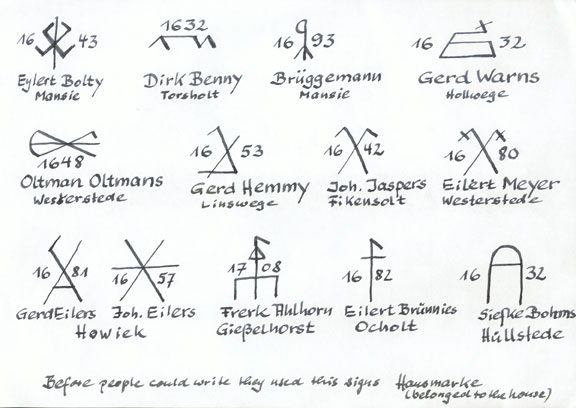 16 43
Eylert Bolty
Mansie
1632
Dirk Benny
Torsholt
16 93
Brüggemann
Mansie
16 32
Gerd Warns
Hollwege
1648
Oltman Oltmans
Westerstede
16 53
Gerd Hemmy
Linswege
16 42
Joh. Jaspers
Fikensolt
16 80
Eilert Meyer
Westerstede
16 81
Gerd Eilers
16 57
Joh. Eilers
Howiek
17 08
Frerk Ahlhorn
Gießelhorst
16 82
Eilert Brünnies
Ocholt
16 32
Siefke Bohms
Hüllstede
Before people could write they used this signs Hausmarke
(belonged to the house)